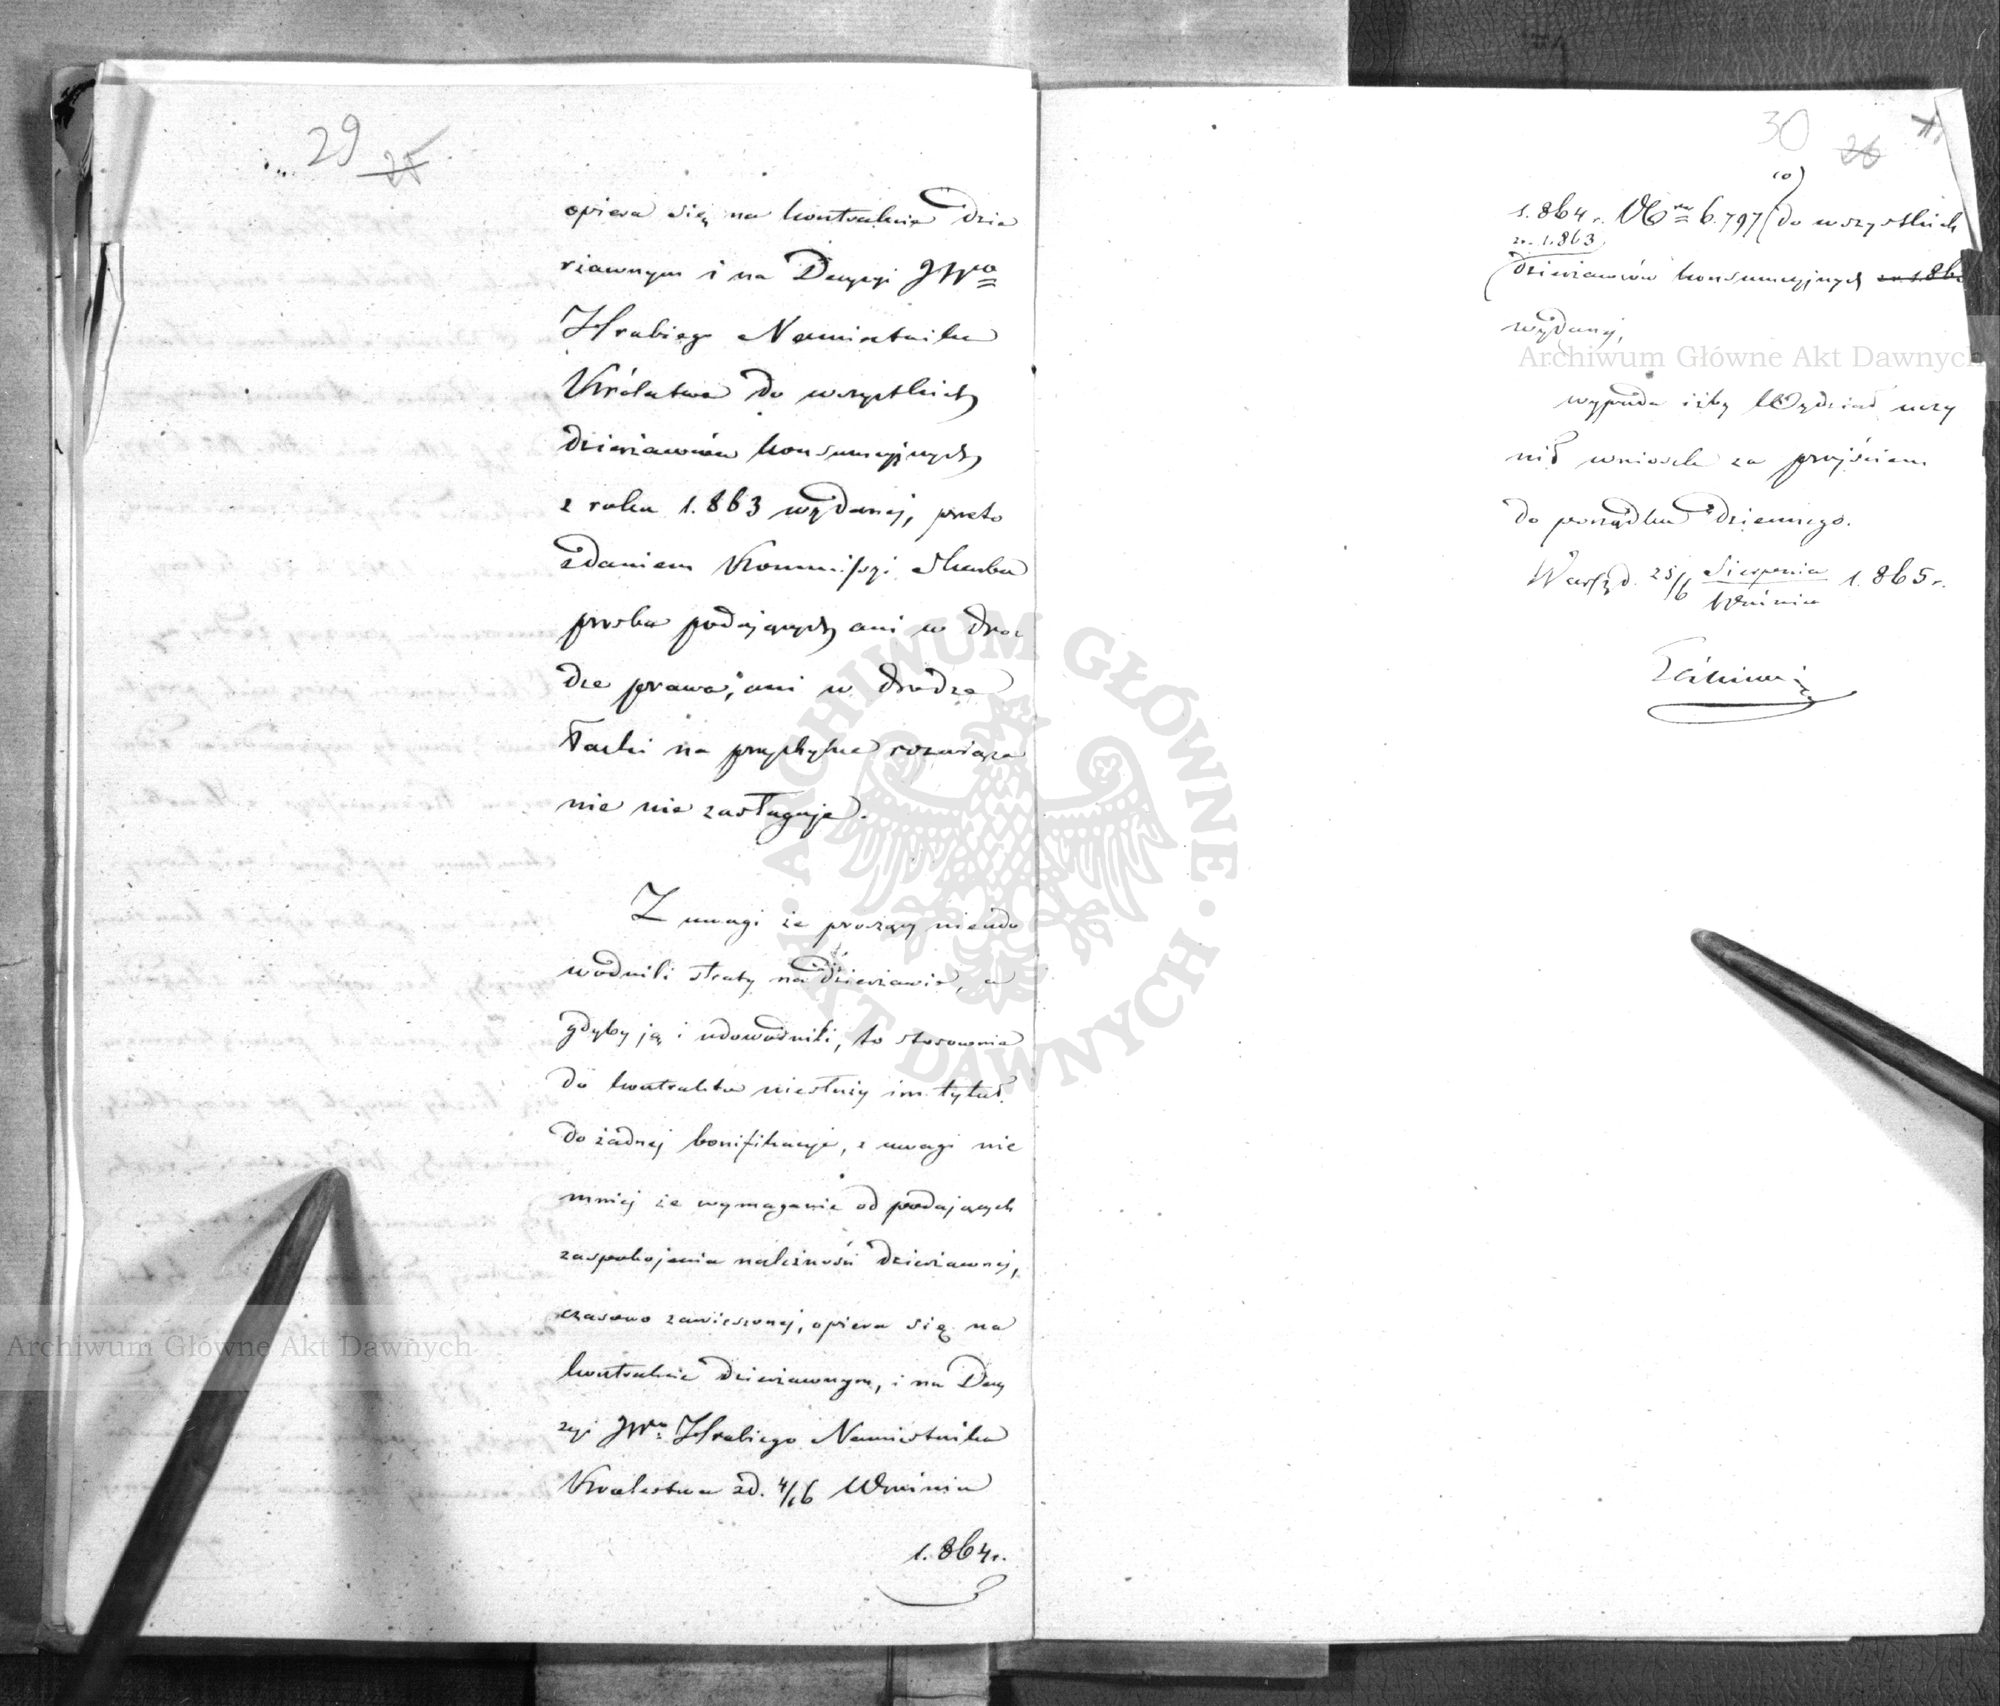 29 25
opiera się na kontrakcie dzie
rżawnym i na Decyzyi JWgo
Hrabiego Namiestnika
Królestwa do wszystkich
dzierżawców konsumcyjnych
z roku 1.863 wydanej, przeto
zdaniem Kommissyi Skarbu
prośba podających ani w dro
dze prawa, ani w drodze
łaski na przychylne rozwiąza
nie nie zasługuje.
Z uwagi że proszący nieudo
wodnili straty na dzierżawie, a
gdyby ją i udowodnili, to stosownie
do kontraktu niesłuży im tytuł
do żadnej bonifikacyi, z uwagi nie
mniej że wymaganie od podających
zaspokojenia należności dzierżawnej,
czasowo zawieszonej, opiera się na
kontrakcie dzierżawnym, i na Decy
zyi JWgo Hrabiego Namiestnika
Królestwa z d. 4/16 Września
1.864 r.
30 26
1.864 r. No 6.797 (do wszystkich
z r. 1.863
dzierżawców konsumcyjnych
wydanej,
wypada iżby Wydział uczy
nił wniosek za przejściem
do porządku dziennego.
Warsz. d. 25/6 Sierpnia/Września 1.865 r.
ARCHIWUM GŁÓWNE AKT DAWNYCH
Archiwum Główne Akt Dawnych
Archiwum Główne Akt Dawnych